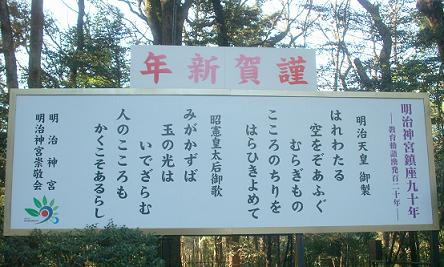 謹賀新年
明治神宮鎮座九十年
―教育勅語渙発百二十年―
明治天皇 御製
はれわたる
空をぞあふぐ
むらぎもの
こころのちりを
はらひきよめて
昭憲皇太后御歌
みがかずば
玉の光は
いでざらむ
人のこころも
かくこそあるらし
明治神宮
明治神宮崇敬会